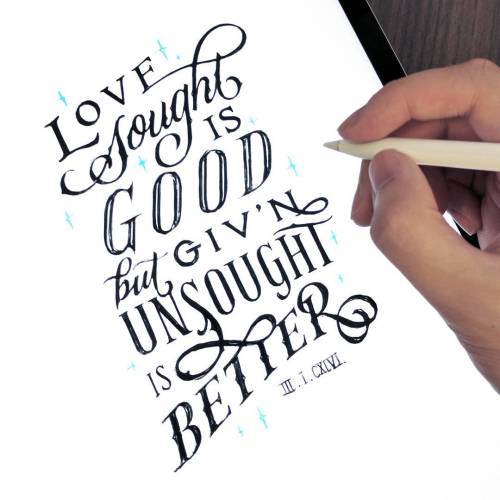 LOVE
sought
IS
GOOD
but GIV'N
UNSOUGHT
IS
BETTER
III.I.CXLVI.